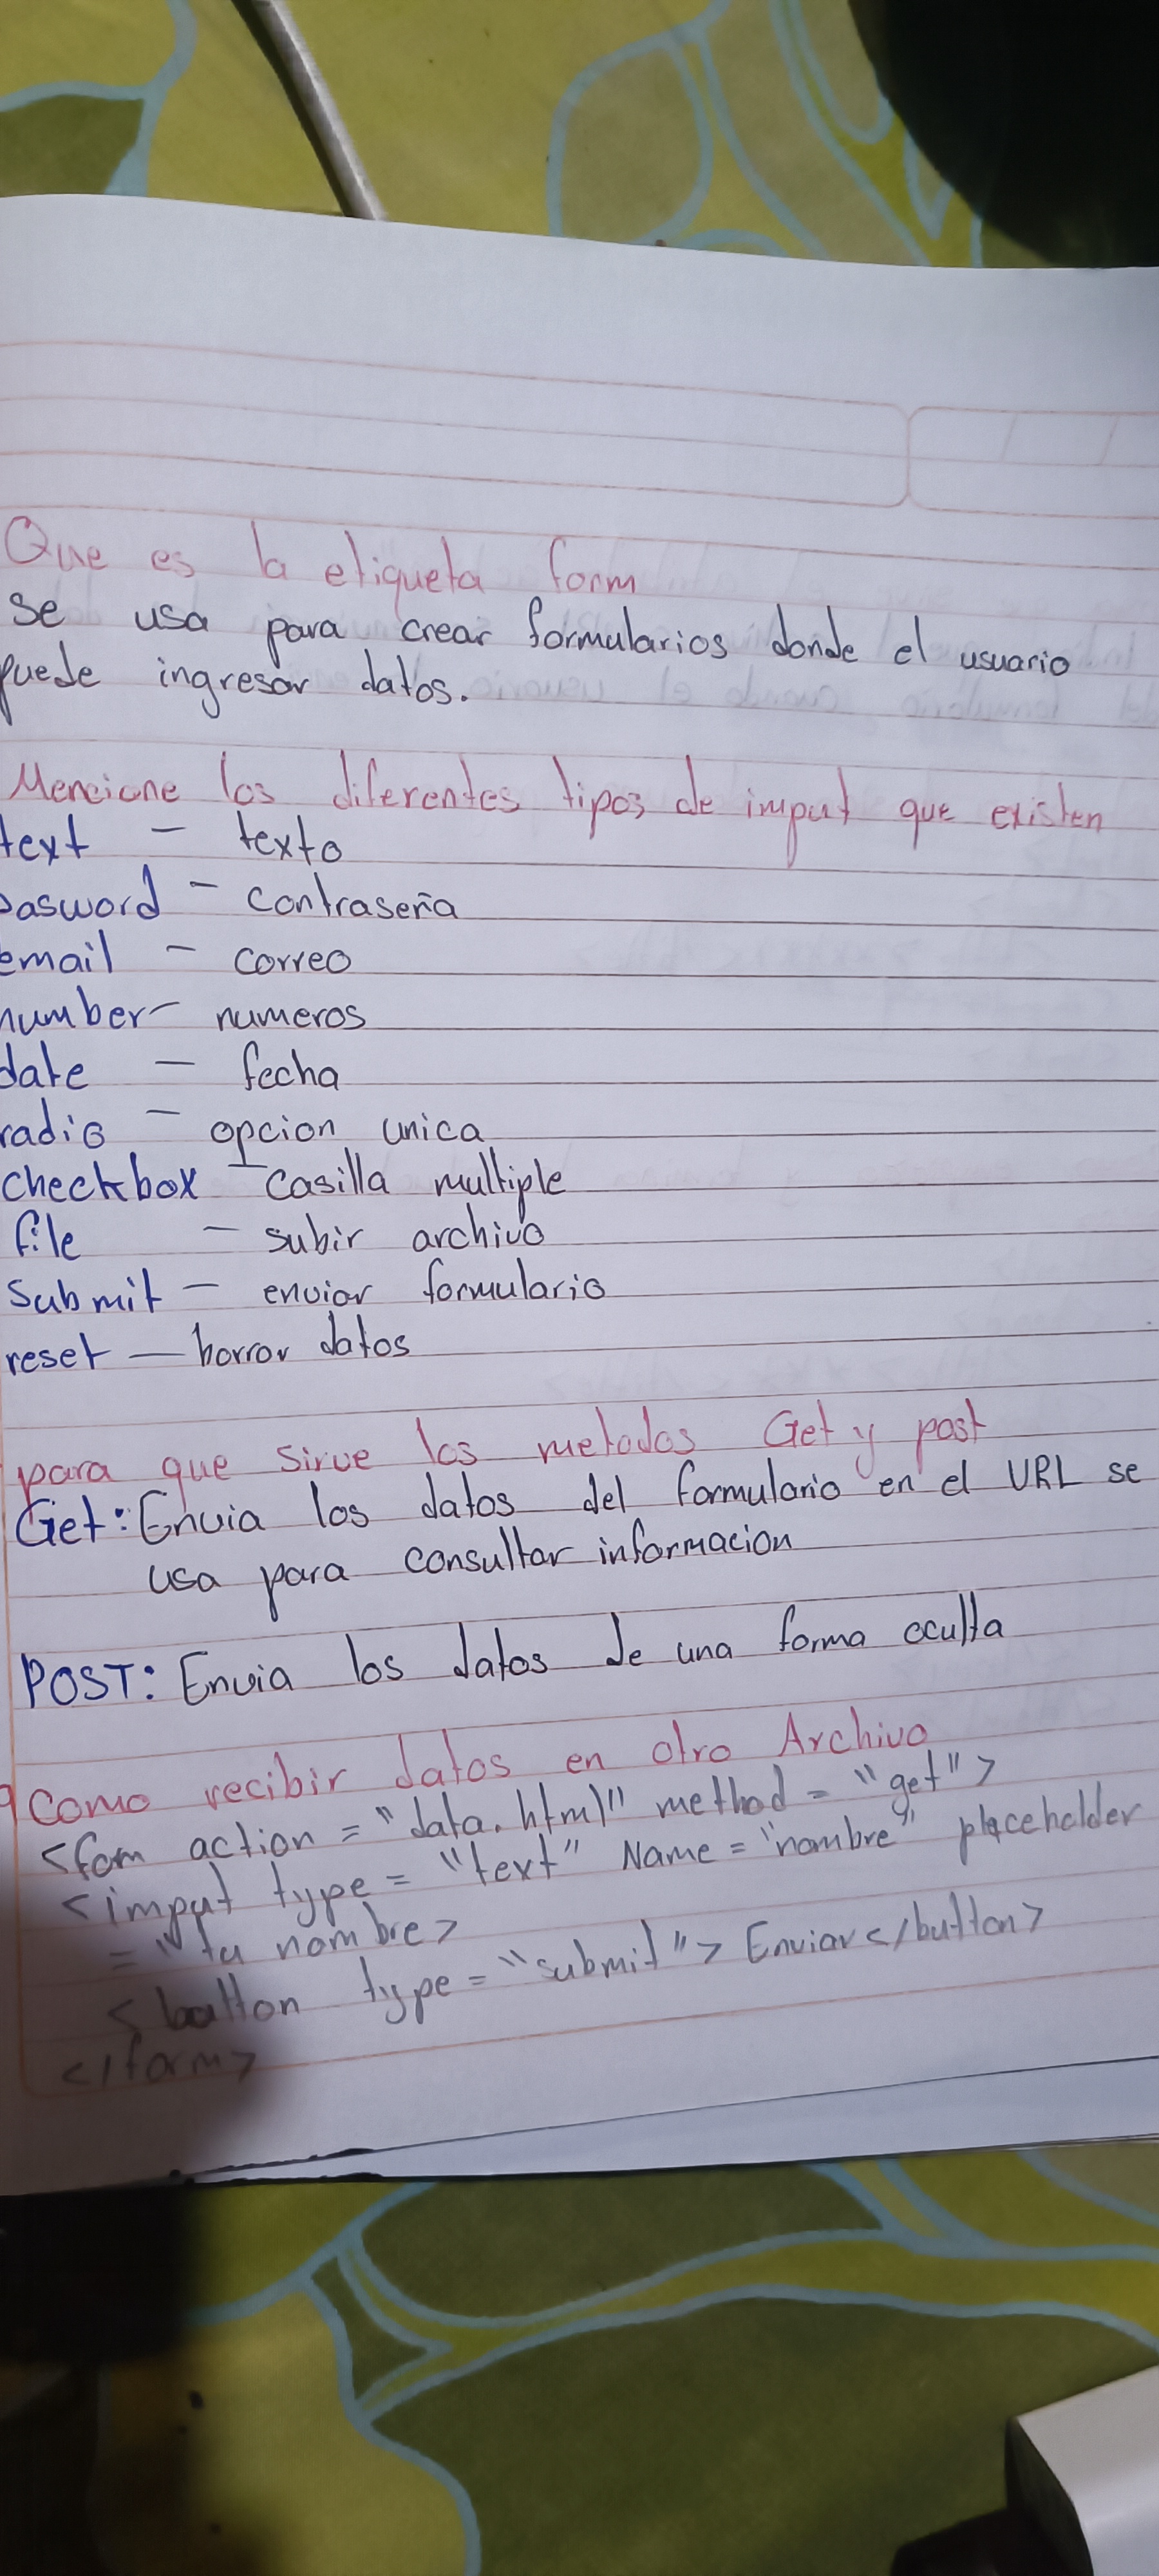 Que es la etiqueta form
se usa para crear formularios donde el usuario
puede ingresar datos.
Mencione los diferentes tipos de imput que existen
text - texto
pasword - contraseña
email - correo
number - numeros
date - fecha
radio - opcion unica
checkbox - casilla multiple
file - subir archivo
submit - enviar formulario
reset - borrar datos
para que sirve los metodos Get y post
Get: Envia los datos del formulario en el URL se
usa para consultar informacion
POST: Envia los datos de una forma oculta
Como recibir datos en otro Archivo
<fom action = "data.html" method = "get">
<imput type = "text" Name = "nombre" placeholder
= "tu nombre>
<button type = "submit"> Enviar </button>
</form>